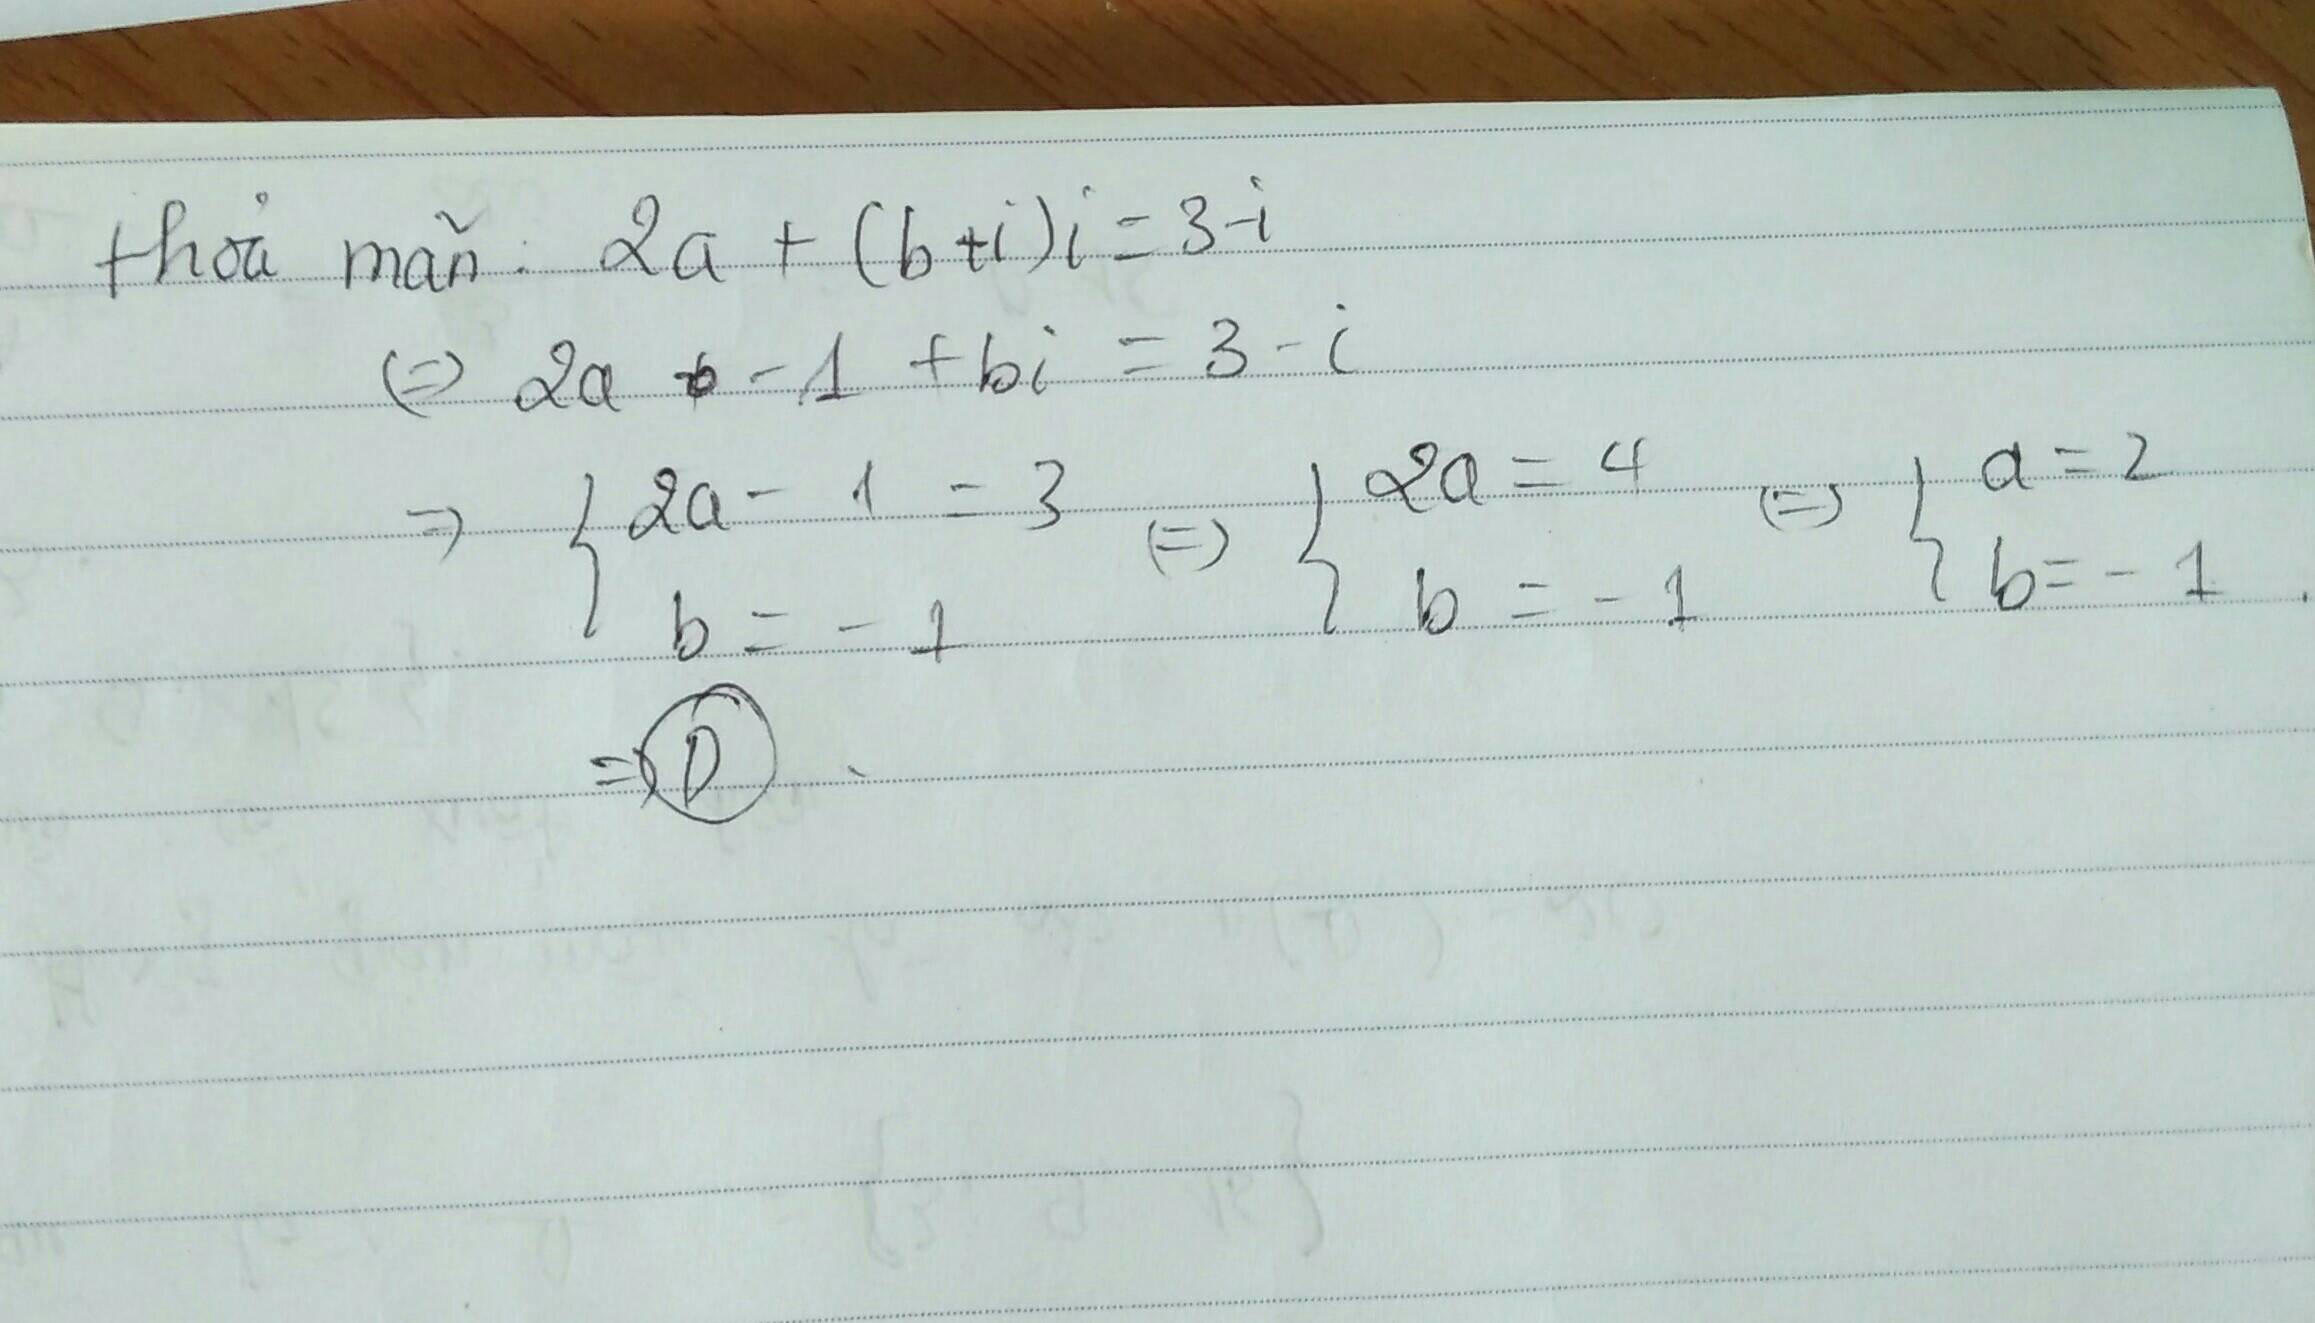 thoả mãn: 2a + (b+i)i = 3-i
(=) 2a - 1 + bi = 3 - i
=) { 2a - 1 = 3 (=) { 2a = 4 (=) { a = 2
b = - 1 b = - 1 b = - 1.
=) D.